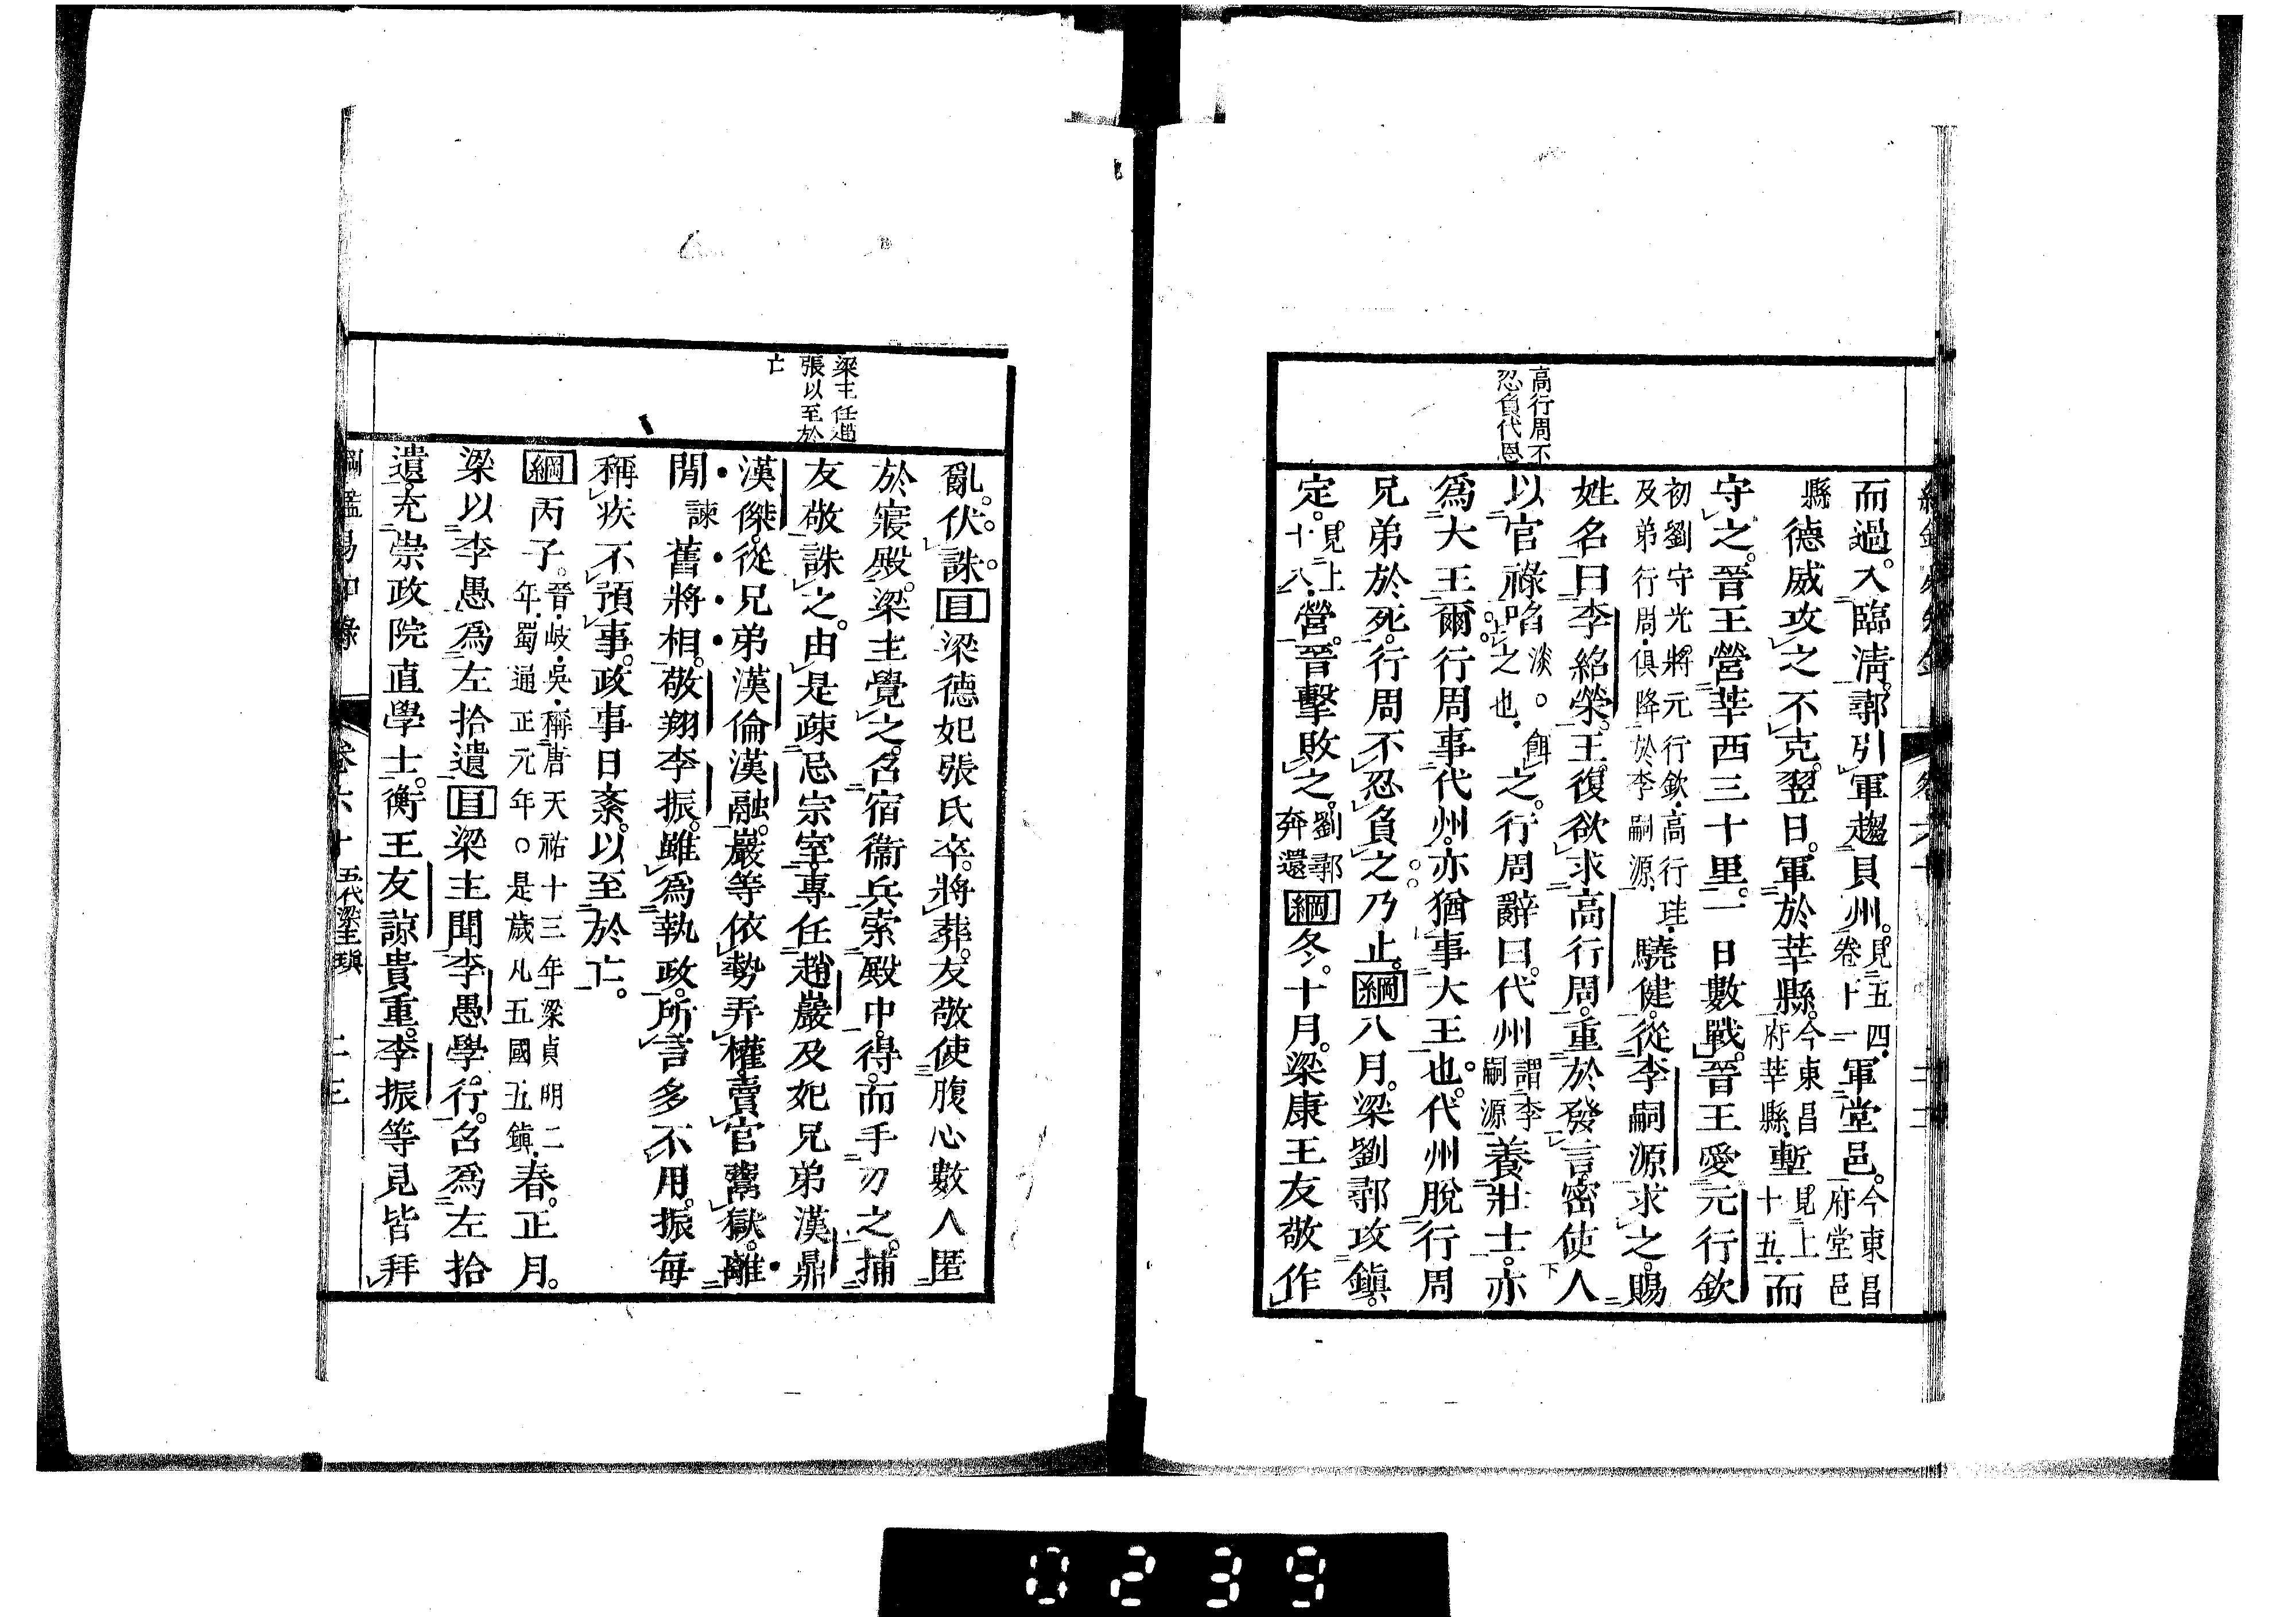 高行周不
忍負代恩
而過入臨清鄩引軍趨貝州見五四卷十一軍堂邑今東昌府堂邑
縣德威攻之不克翌日軍於莘縣今東昌府莘縣塹見上十五而
守之晉王營莘西三十里一日數戰晉王愛元行欽
初劉守光將元行欽高行珪及弟行周俱降於李嗣源驍健從李嗣源求之賜
姓名曰李紹榮王復欲求高行周重於發言密使人
以官祿啗淡上之也餌之行周辭曰代州謂李嗣源養壯士亦
爲大王爾行周事代州亦猶事大王也代州脫行周
兄弟於死行周不忍負之乃止綱八月梁劉鄩攻鎮
定見上十八營晉擊敗之劉鄩奔還綱冬十月梁康王友敬作
梁主任趙
張以至於
亡
亂伏誅目梁德妃張氏卒將葬友敬使腹心數人匿
於寢殿梁主覺之召宿衞兵索殿中得而手刃之捕
友敬誅之由是疎忌宗室專任趙巖及妃兄弟漢鼎
漢傑從兄弟漢倫漢融巖等依勢弄權賣官鬻獄離
閒諫舊將相敬翔李振雖爲執政所言多不用振每
稱疾不預事政事日紊以至於亡
綱丙子晉岐吳稱唐天祐十三年梁貞明二年蜀通正元年○是歲凡五國五鎮春正月
梁以李愚爲左拾遺目梁主聞李愚學行召爲左拾
遺充崇政院直學士衡王友諒貴重李振等見皆拜
綱鑑易知錄 卷六十 五代梁主瑱 二三